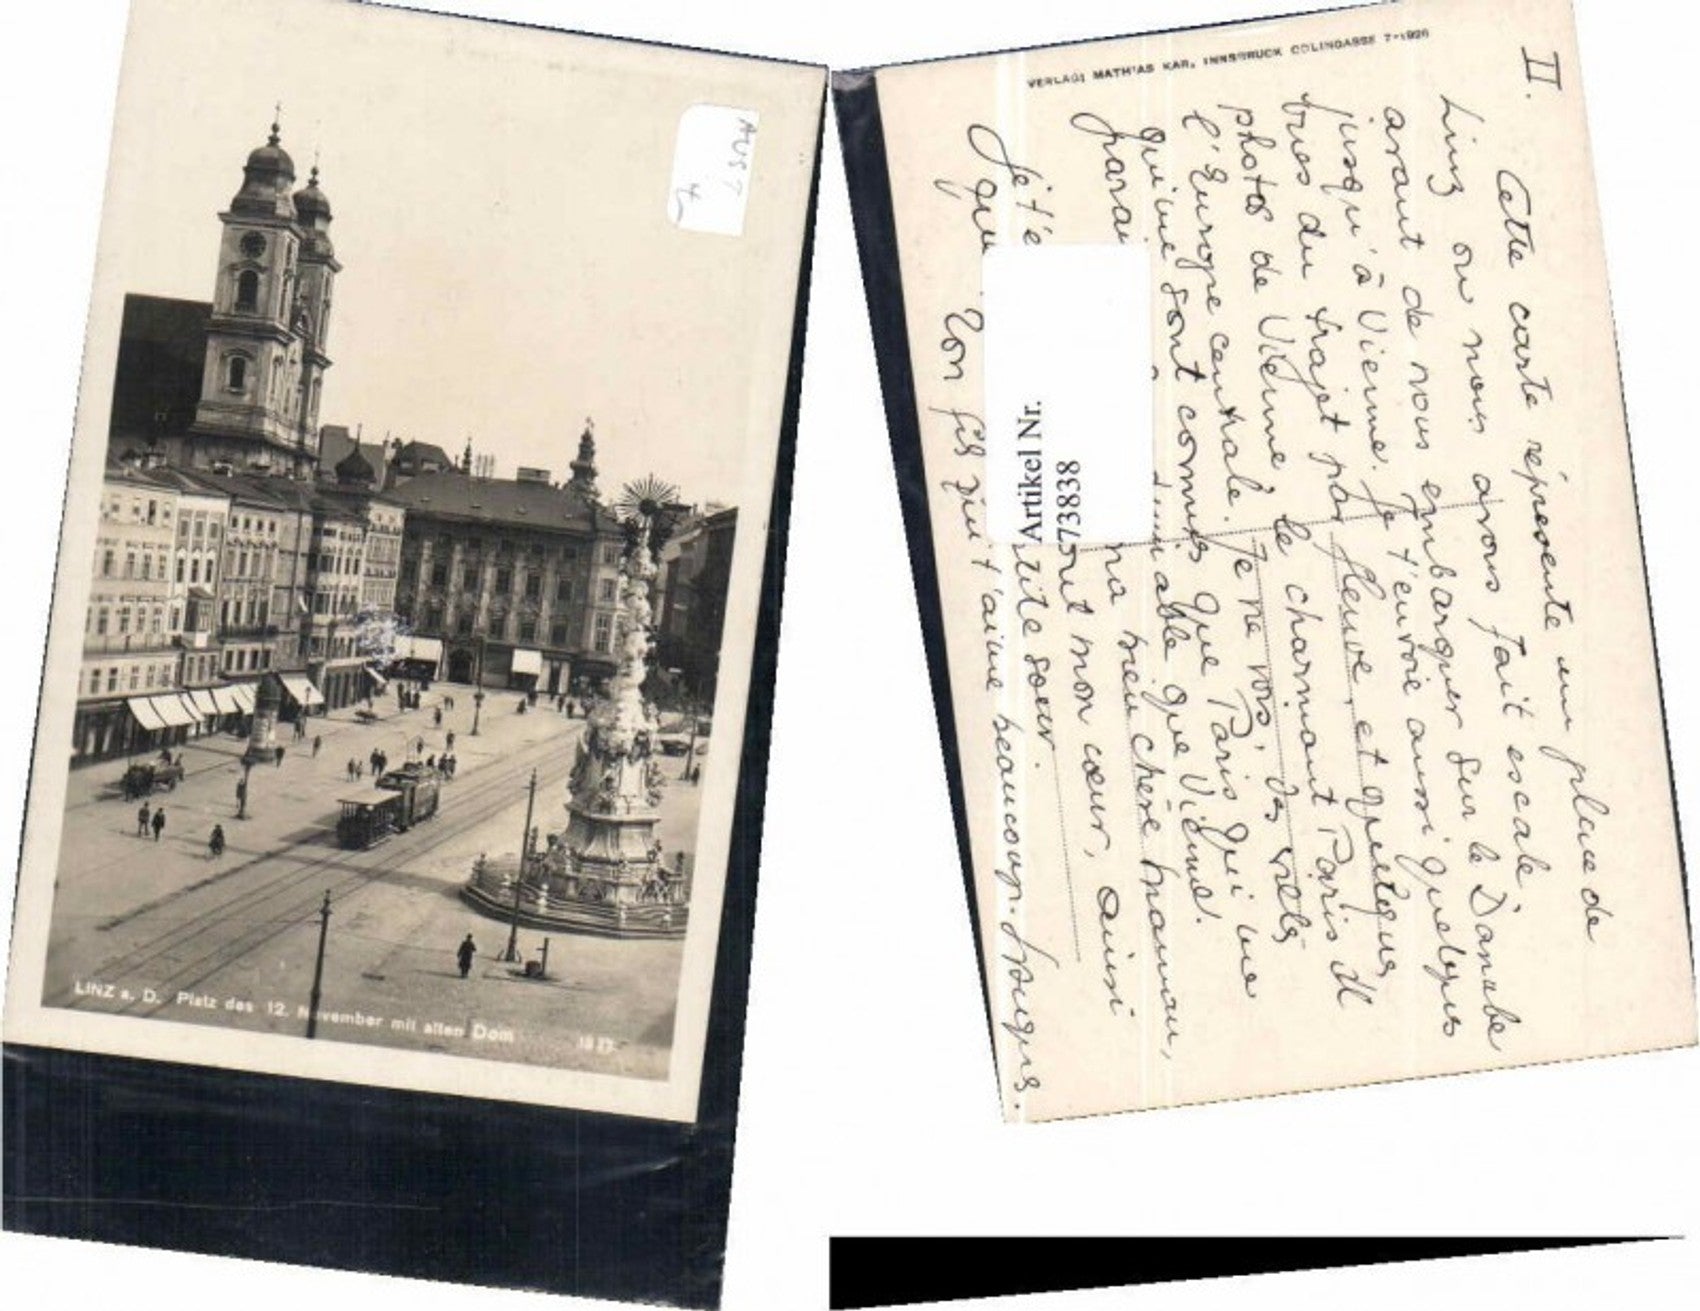 AUS 7
LINZ a. D. Platz des 12. November mit alten Dom 1827
VERLAG: MATHIAS KAR, INNSBRUCK COLINGASSE 7-1926
II.
Cette carte répresente un place de
Linz ou nous avons fait escale
avant de nous embarquer sur le Danube
jusqu'à Vienne. Je t'envoie aussi quelques
du trajet par fleuve et quelques
photos de Vienne le charmant Paris d
l'Europe centrale. Je ne vois, des villes
qui me sont connues que Paris qui me
parai aable que Vienne.
ma bien chère maman,
out mon cœur, ainsi
Je t'e tite soeur.
que
Ton fils qui t'aime beaucoup. Jacques.
Artikel Nr.
573838